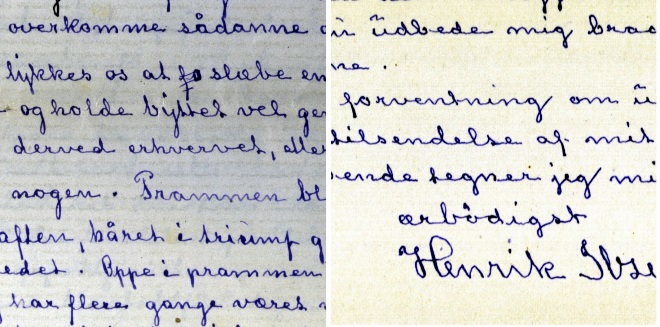 overkomme sådanne
lykkes os at få slæbe en
og holde byttet vel
derved erhvervet, elle
nogen. Prammen bl
aften, båret i triumf g
edet. Oppe i prammen
har flere gange været
udbede mig
ne.
forventning om
tilsendelse af mit
ende tegner jeg mi
ærbödigst
Henrik Ibse